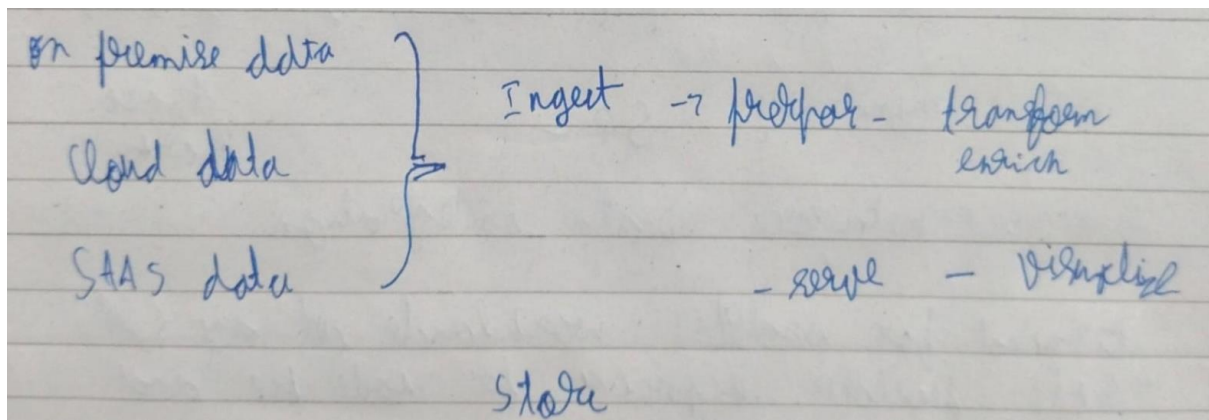 On premise data
Cloud data
SAAS data
Ingest → prepar - transform
enrich
- serve - visualize
Store